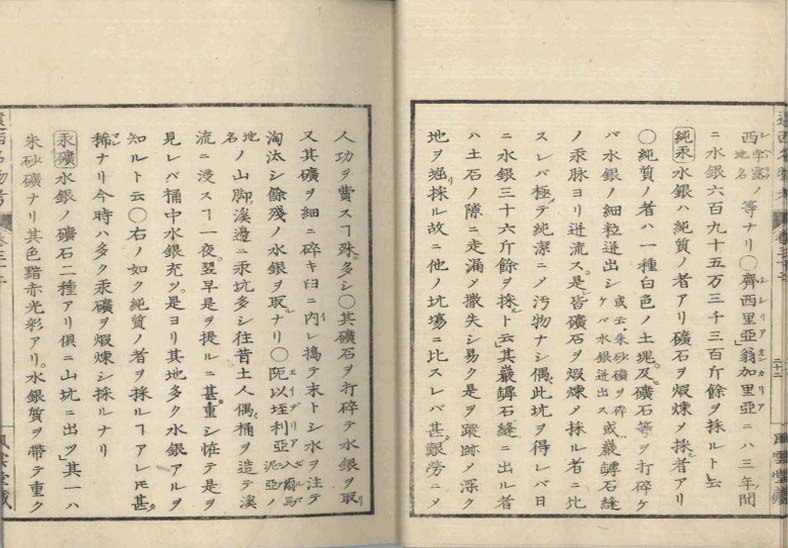 西孛露ノ地名等ナリ〇齊西里亞翁加里亞ニハ三年間
ニ水銀六百九十五万三千三百斤餘ヲ採ルト云
純汞 水銀ハ純質ノ者アリ礦石ヲ煆煉メ採者アリ
〇純質ノ者ハ一種白色ノ土塊及礦石等ヲ打碎ケ
バ水銀ノ細粒迸出シ或云朱砂礦ヲ碎ケバ水銀迸出ス或巖罅石縫
ノ汞脉ヨリ迸流ス是皆礦石ヲ煆煉メ採ル者ニ比
スレバ極テ純潔ニメ汚物ナシ偶此坑ヲ得レバ日
ニ水銀三十六斤餘ヲ採ト云其巖罅石縫ニ出ル者
ハ土石ノ隙ニ走漏メ撒失シ易ク是ヲ蹤跡メ深ク
地ヲ掘採ル故ニ他ノ坑塲ニ比スレバ甚艱勞ニメ
人功ヲ費スヿ殊多シ〇其礦石ヲ打碎テ水銀ヲ取
又其礦ヲ細ニ碎キ臼ニ内レ搗テ末トシ水ヲ注テ
淘汰シ餘殘ノ水銀ヲ取ルナリ〇阨以垤利亞入爾馬泥亞ノ
地名ノ山脚溪邊ニ汞坑多シ往昔土人偶桶ヲ造テ溪
流ニ浸スヿ一夜翌早是ヲ提ルニ甚重シ恠テ是ヲ
見レバ桶中水銀充ツ是ヨリ其地多ク水銀アルヲ
知ルト云〇右ノ如ク純質ノ者ヲ採ルヿアレ𪜈甚
稀ナリ今時ハ多ク汞礦ヲ煆煉シ採ルナリ
汞礦 水銀ノ礦石二種アリ俱ニ山坑ニ出ヅ其一ハ
朱砂礦ナリ其色黯赤光彩アリ水銀質ヲ帶テ重ク